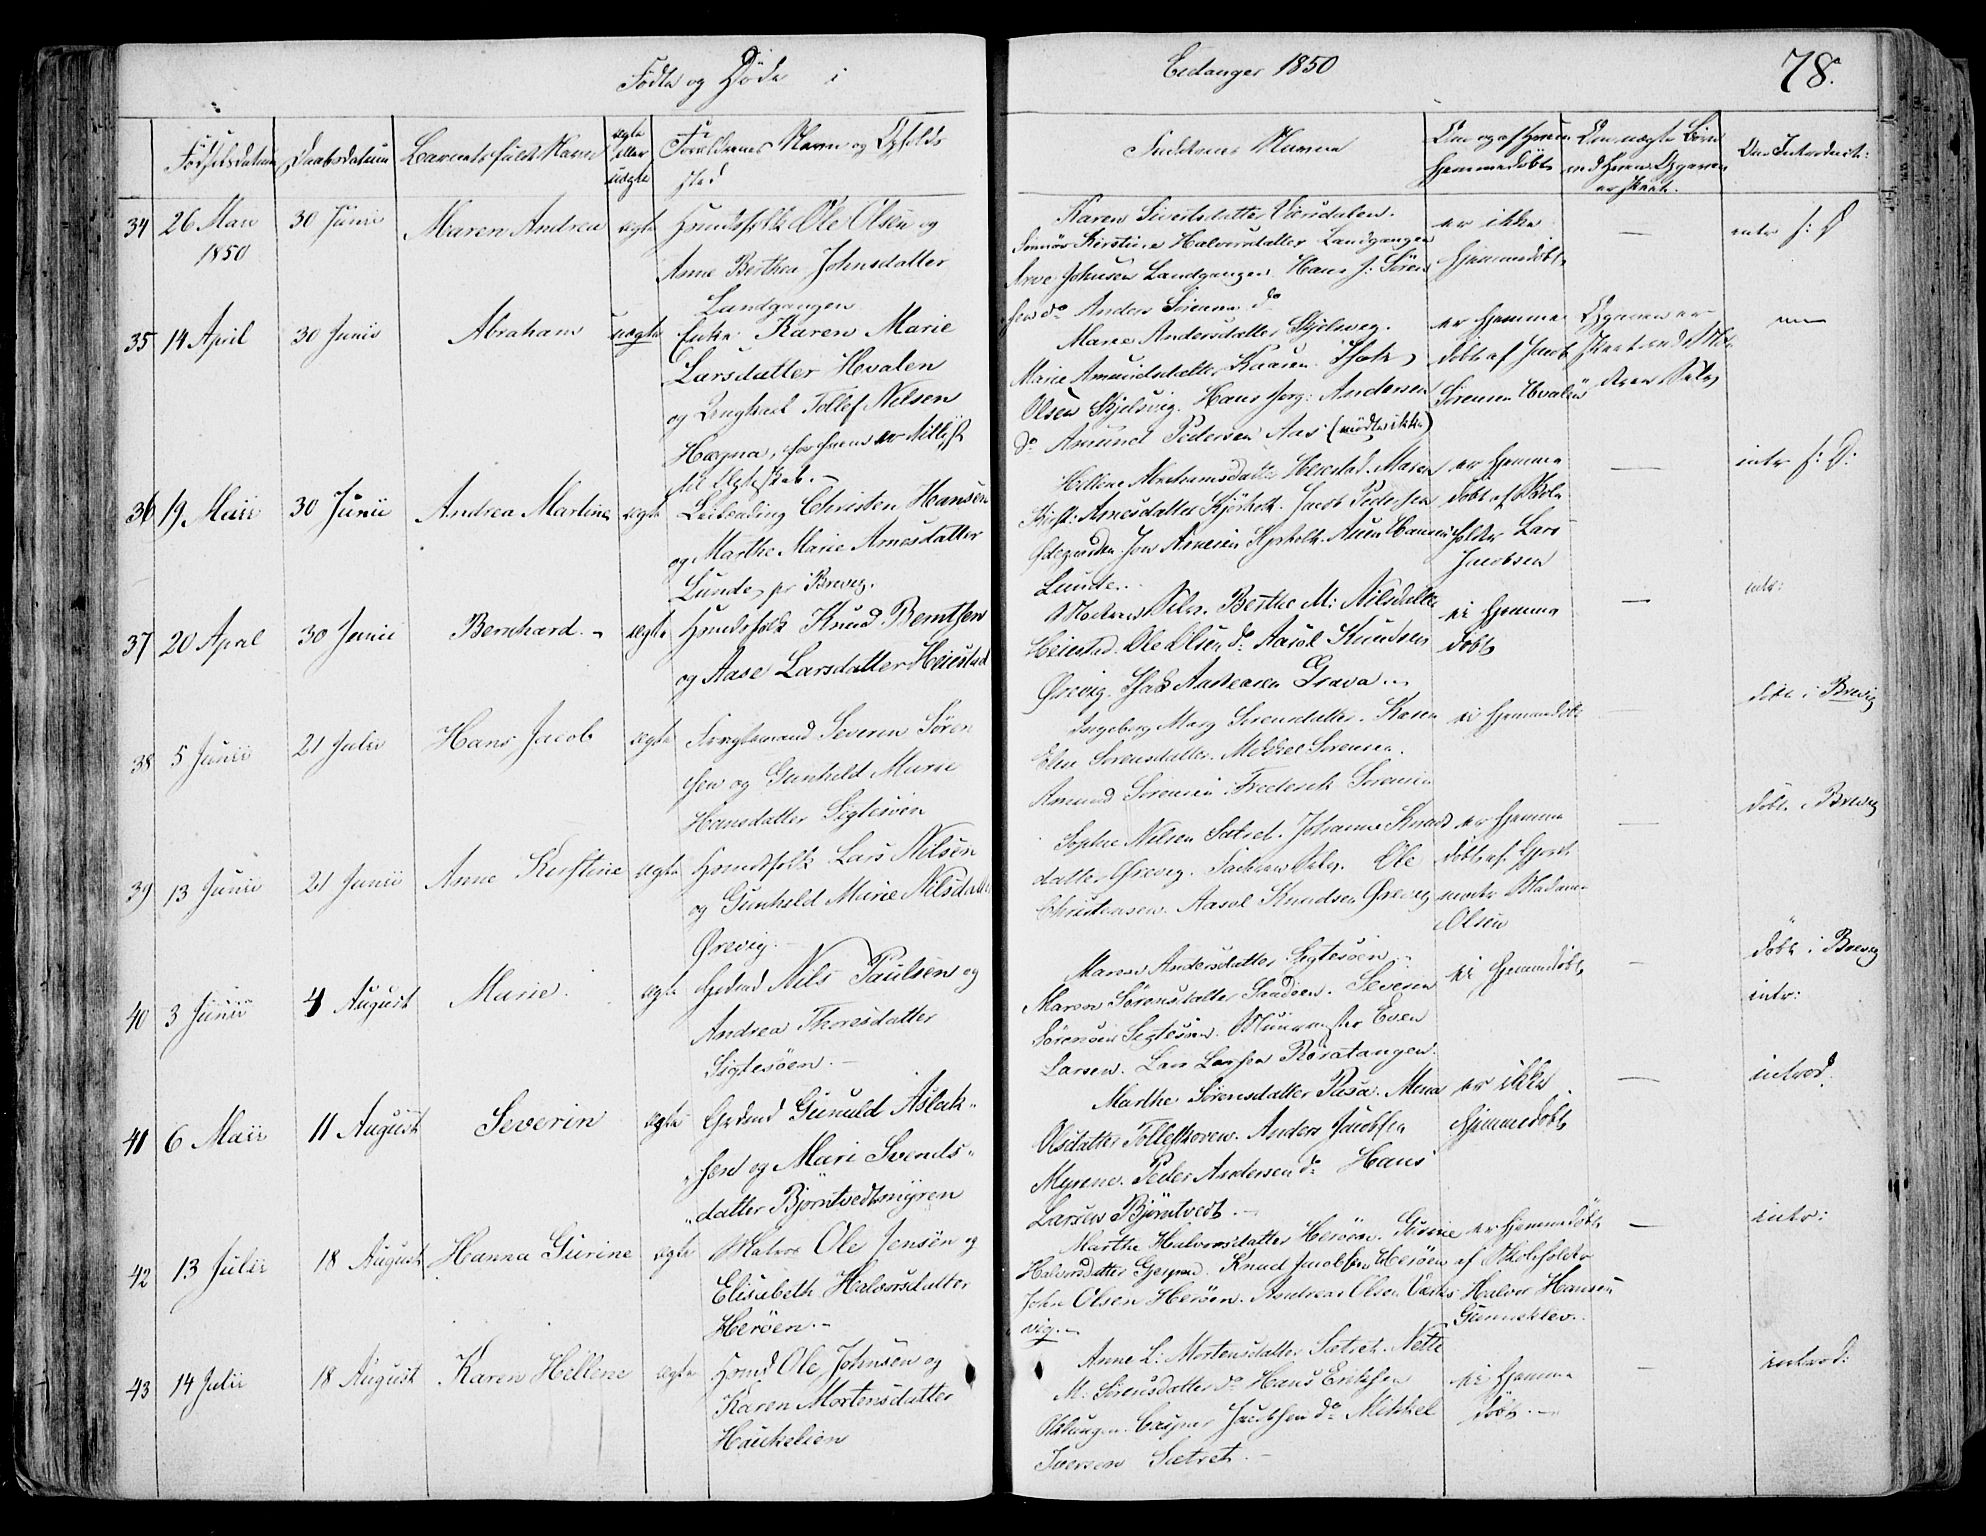 Fødte og Døbte i
Eidanger 1850
78.a
Fødselsdatum
Daabsdatum
Barnets fulde Navn
ægte eller uægte
Forældrenes Navn og Opholdssted
Faddernes Navne
Om og af Hvem hjemmedøbt
Om uægte Børn ved Hvem Opgaven er skeet.
Om Introduct:
34 26 Maii 1850
30 Junii
Maren Andrea
ægte
Huusfolk Ole Olsen og
Anne Berthea Johnsdatter
Landgangen
Karen Sivertsdatter
Kirstine Halvorsdatter Landgangen
Arve Johnsen Landgangen. Hans J: Sören
sen do Anders do
er ikke
hjemmedøbt
—
intr
35 14 April
30 Junii
Abraham
uægte
Enke Karen Marie
Larsdatter Hvalen
og Ungkarl Tollef Nilsen
Hægna, for hvem er tillyst
til Ægteskab. —
Maren Andersdatter Skjelsvig.
Marie Amundsdatter
Olsen Skjelsvig. Hans Jørg: Andersen
do Amund Pedersen Aas (mødte ikke)
er hjemme
døbt af Jacob
Sörensen Hvalen
Opgaven er
skeet ved Mo
deren selv
36 19 Maii
30 Junii
Andrea Martine
ægte
Leilending Christen Hansen
og Marthe Marie Arnesdatter
Lunde, pr Brevig.
Hellene Abrahamsdatter Maren
Kirst: Arnesdatter Kjørholt. Jacob Pedersen
Ødegaarden. Jon Arnesen Kjørholt.
Lunde. —
er hjemme
døbt af Skole
holder Lars
Jacobsen
—
intr
37 20 April
30 Junii
Bernhard. —
ægte
Huusfolk Knud Berntsen
og Aase Larsdatter Heiestad
Moderen selv. Berthe M: Nilsdatter
Heiestad. Ole Olsen do Aasol Knudsen
Ørevig. Isak Andersen Grava —
ei hjemme
døbt
—
intr:
38 5 Junii
21 Julii
Hans Jacob
ægte
Severin Sören
sen og Gunhild Marie
Hansdatter Sigtesøen
Ingeborg Marg Sorensdatter. Karen
Elen Sorensdatter. Mikkel Sorensen.
Amund Sorensen. Frederik Sorensen
ei hjemmedøbt
—
döbt i Brevig
39 13 Junii
21 Junii
Anne Kirstine
ægte
Huusfolk Lars Nilsen
og Gunhild Marie Nilsdatter
Ørevig. —
Sophie Nilsen Sætret. Johanne Knuds
datter Ørevig. Faderen selv. Ole
Christensen. Aasol Knudsen Ørevig
er hjemme
døbt af Gjord
moder Madame
Olsen
—
döbt i Brevig
40 3 Junii
4 August
Marie.
ægte
Gdmd Nils Paulsen og
Andrea Thoresdatter
Sigtesöen. —
Maren Andersdatter Sigtesöen.
Maren Sörensdatter Sandöen. Severin
Sörensen Sigtesöen. Muurmester Even
Larsen. Lars Larsen Röratangen.
ei hjemmdøbt
—
döbt i Brevig
intr:
41 6 Maii
11 August
Severin
ægte
Grdmd Gunuld Aslak-
sen og Mari Svends-
datter Bjørntvedtmyren
Marthe Sörensdatter Pasa. Mena
Olsdatter Tollefshoven. Anders Jacobsen
Myrene. Peder Andersen do Hans
Larsen Bjørntvedt. —
er ikke
hjemmedøbt
—
introd
42 13 Julii
18 August
Hanna Gurine
ægte
Matros Ole Jensen og
Elisabeth Halvorsdatter
Herøen. —
Marthe Halvorsdatter Herøen. Gurine
Halvorsdatter Gjerpen. Knud Jacobsen Herøen
John Olsen Herøen. Andreas Olsen
vig. —
er hjemmedøbt
af Skoleholder
Halvor Hansen
Gunneklev.
—
intr:
43 14 Julii
18 August
Karen Hellene
ægte
Hsmd Ole Johnsen og
Karen Mortensdatter
Haukelien
Anne L: Mortensdatter Sætret. Nette
M. Sörensdatter do Hans Eriksen
Oklungen. Casper Jacobsen do Mikkel
Iversen Sætret. —
ei hjemme
døbt. —
—
introd: